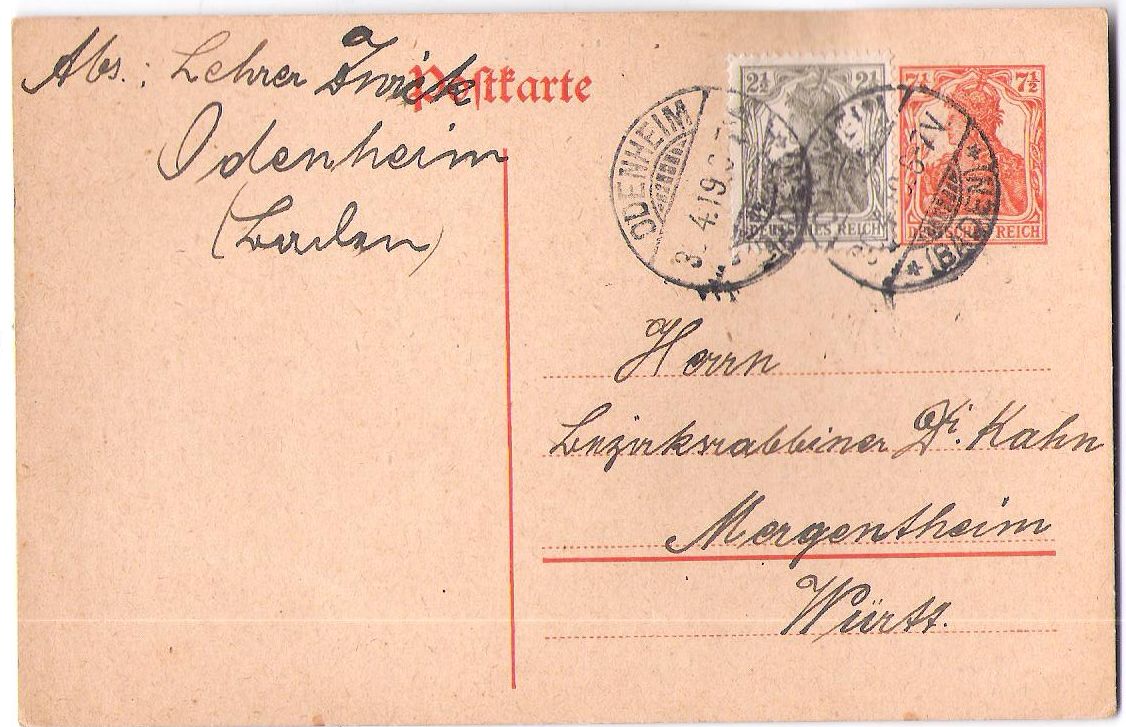 Abs.: Lehrer
Odenheim
(Baden)
Postkarte
2½ 2½
DEUTSCHES REICH
7½ 7½
DEUTSCHES REICH
ODENHEIM
4.19
(BADEN)
6-7V.
Herrn
Bezirksrabbiner Dr. Kahn
Mergentheim
Württ.